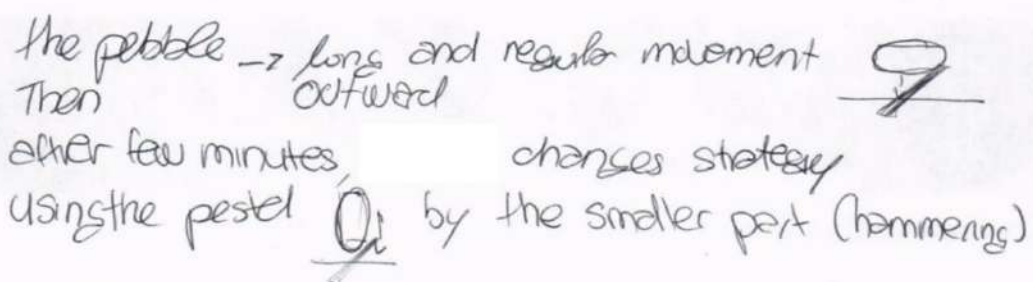 the pebble → long and regular movement
Then outward
after few minutes, changes strategy
using the pestel by the smaller part (hammering)